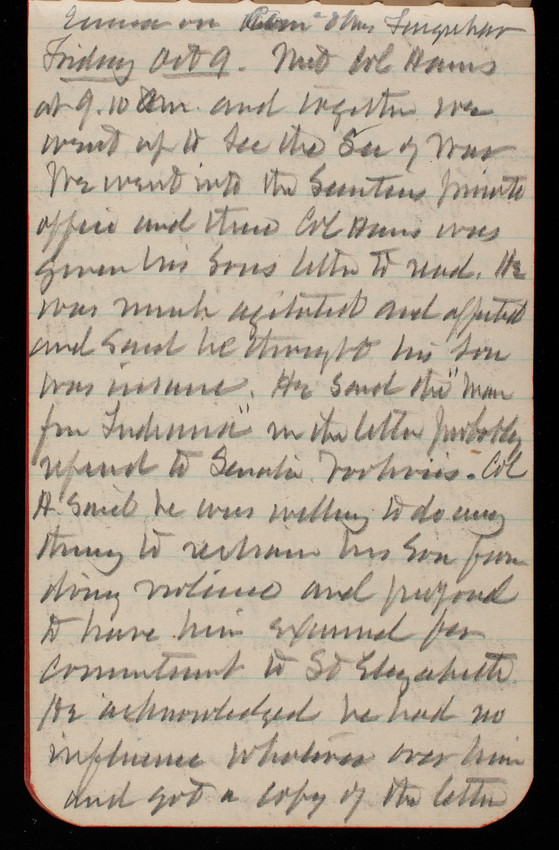 Emma on Mrs Farquhar
Friday Oct 9. Met Col Hains
at 9.10 am and together we
went up to see the Sec of War
We went into the Secretarys private
office and there Col Hains was
given his Sons letter to read. He
was much agitated and affected
and said he thought his Son
was insane. He said the "Man
from Indiana" in the letter probably
referred to Senator Col
H. said he was willing to do any
thing to restrain his Son from
doing violence and proposed
to have him examined for
commitment to St Elizabeth.
He acknowledged he had no
influence whatever over him
and got a copy of the letter